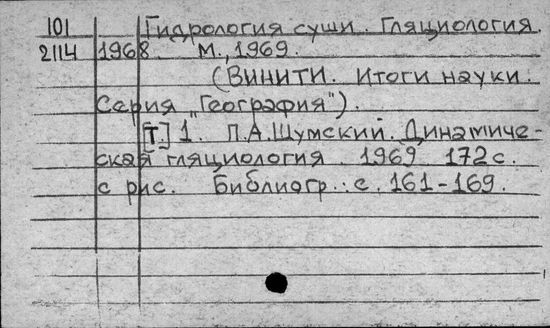 101 Гидрология суши. Гляциология.
2114 1968. М., 1969.
(ВИНИТИ. Итоги науки.
Серия „География").
[Т.] 1. П.А. Шумский. Динамиче-
ская гляциология. 1969 172с.
с рис. Библиогр.: с. 161-169.